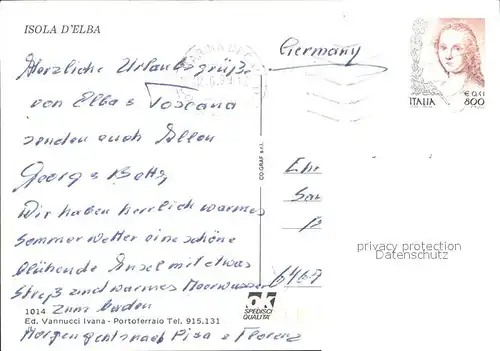 ISOLA D'ELBA
Germany
ITALIA
€ 0,41
800
Herzliche Urlaubsgrüße
von Elba & Toscana
senden euch Allen
Georg &
Wir haben herrlich warmes
Sommerwetter eine schöne
blühende Insel mit etwas
und warmes Meerwasser
zum baden
Morgen geht's nach Pisa & Florenz
COGRAF s.r.l.
privacy protection
Datenschutz
ok
SPEDISCI
QUALITÀ
1014
Ed. Vannucci Ivana - Portoferraio Tel. 915.131